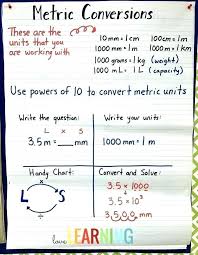 Metric Conversions
These are the
units that you
are working with
10 mm = 1 cm
100cm = 1m
1000 mm = 1 m
1000 m = 1 km
1000 grams = 1 kg (weight)
1000 mL = 1 L (capacity)
Use powers of 10 to convert metric units
Write the question:
L x S
3.5 m = ___ mm
Write your units:
1000 mm = 1 m
Handy Chart:
x
L S
÷
Convert and Solve:
3.5 x 1000
3.5 x 10³
3,500 mm
love,
LEARNING